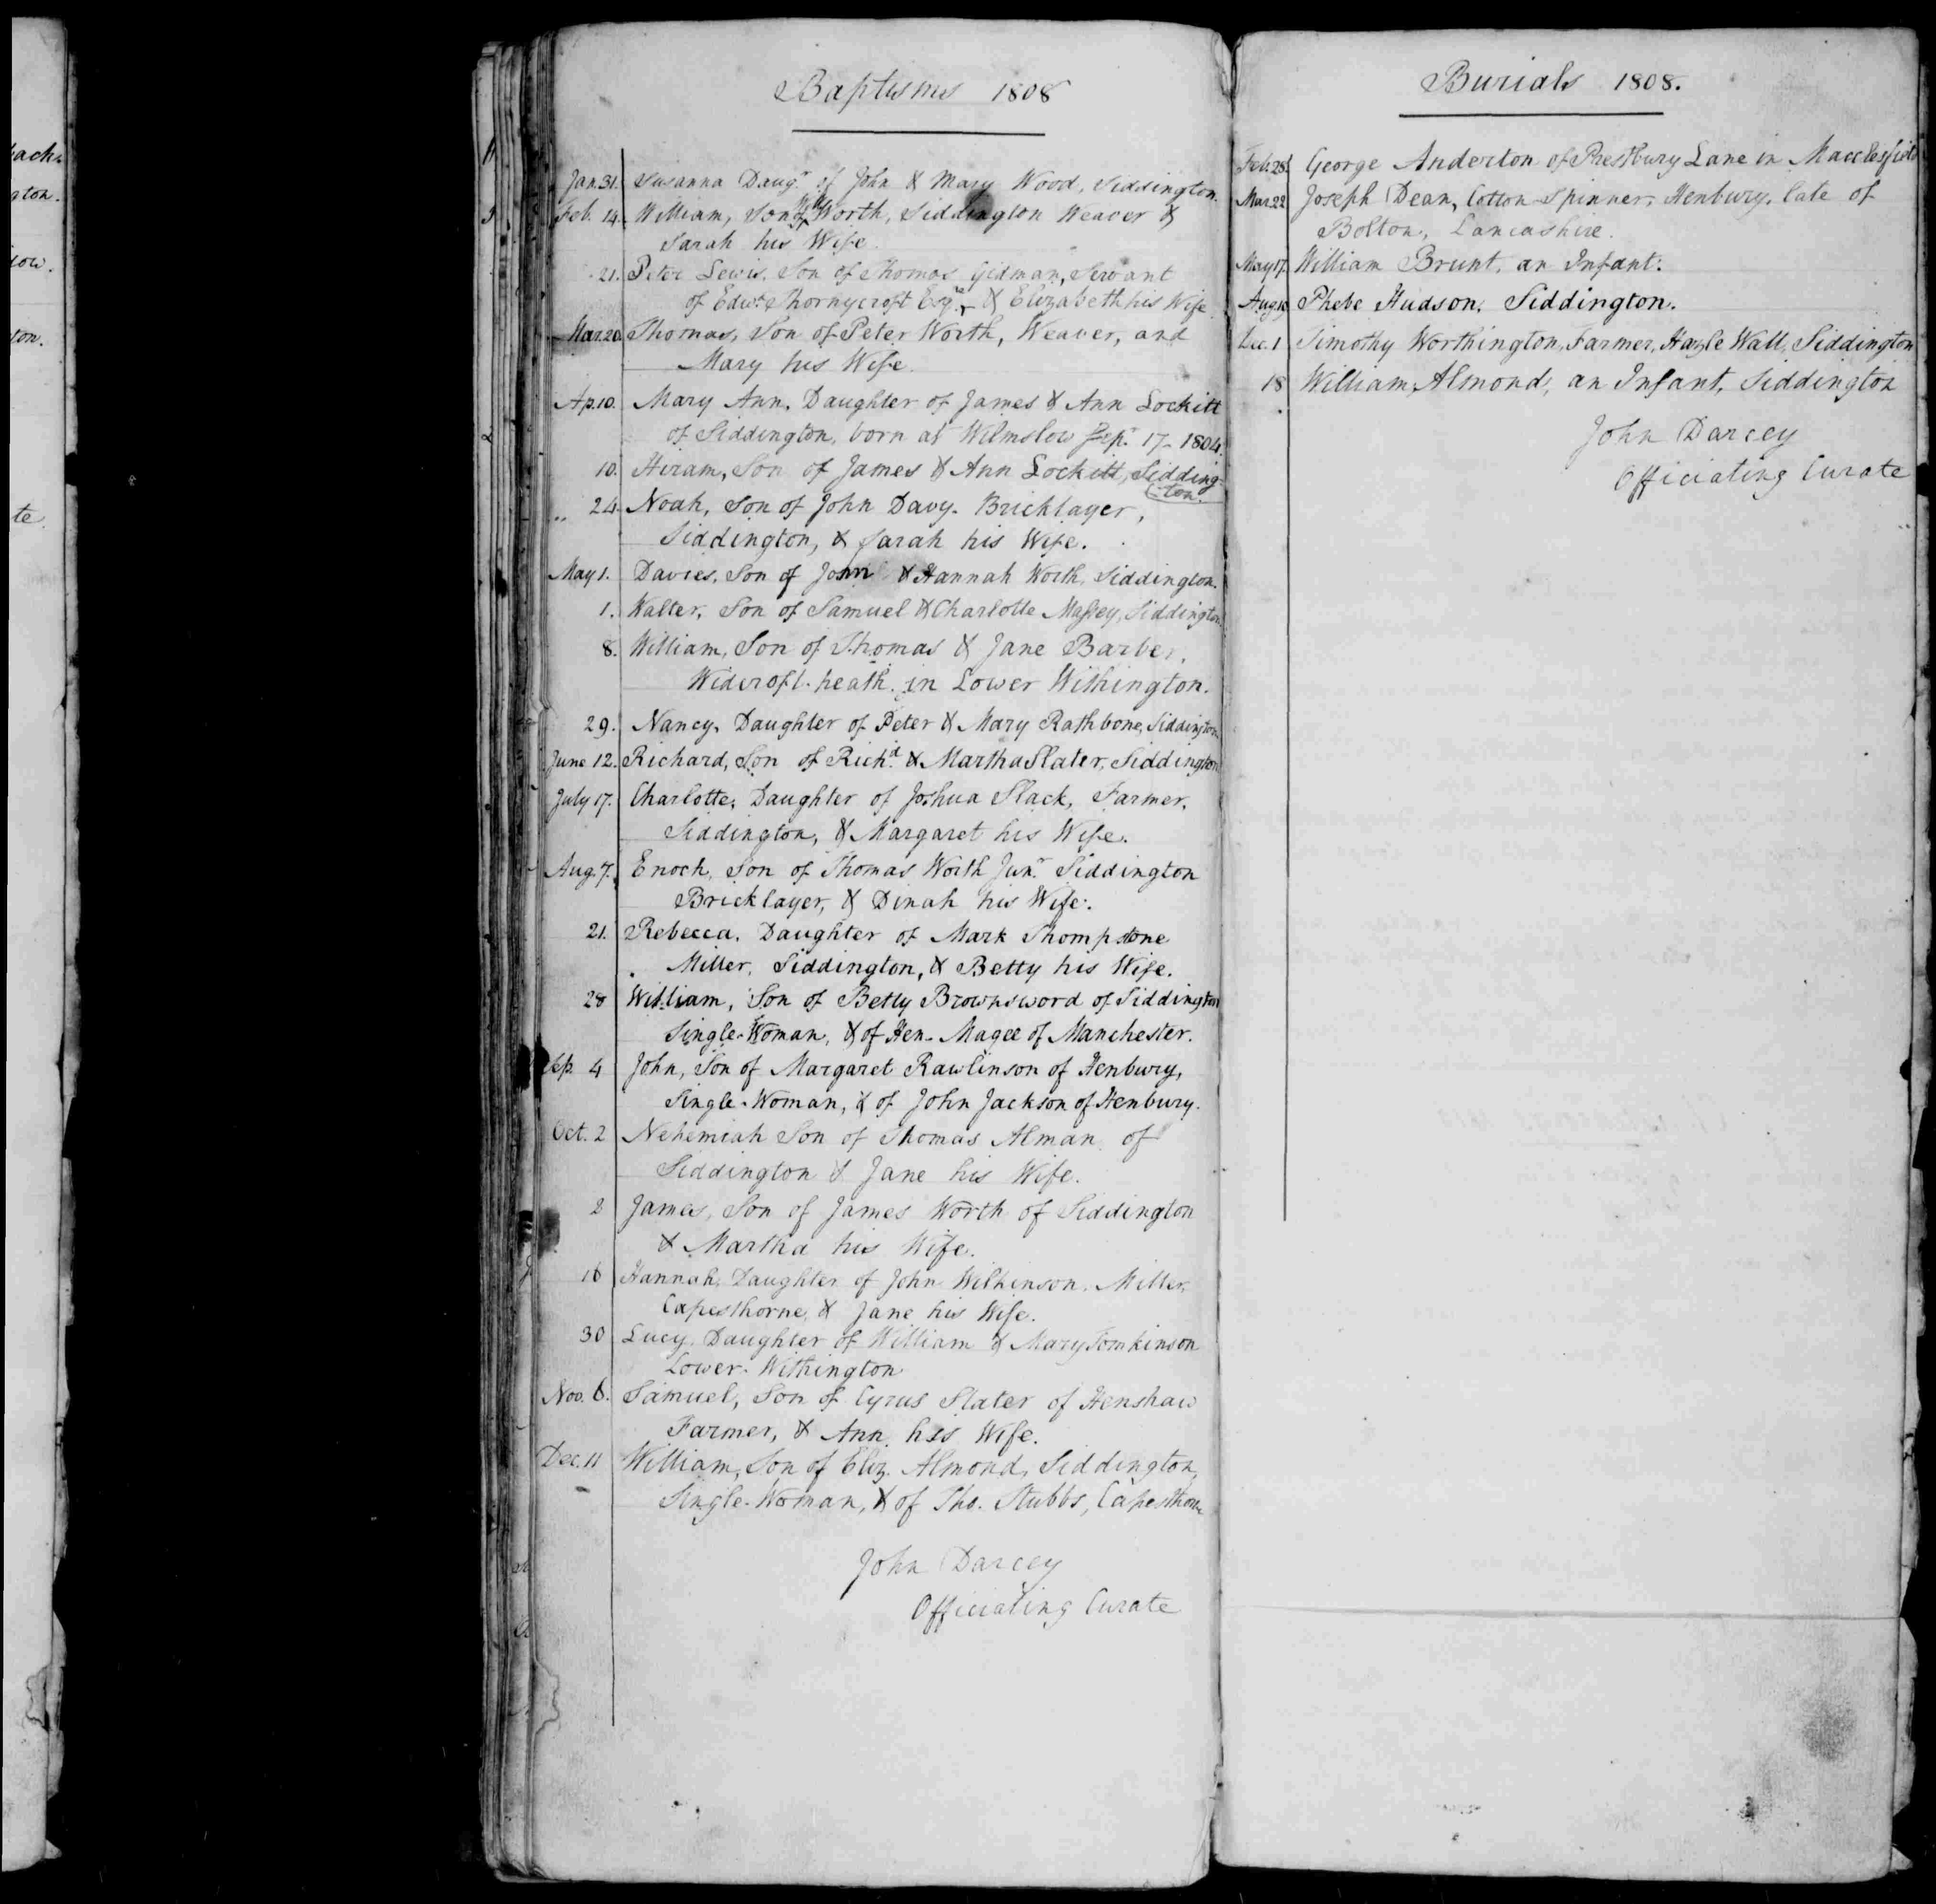 Baptisms 1808
Jan. 31. Susanna Daugr. of John & Mary Wood, Siddington.
Feb. 14. William, Son of Wm. Worth, Siddington Weaver &
Sarah his Wife.
21. Peter Lewis, Son of Thomas Gidman, Servant
of Edwd. Thornycroft Esqr. & Elizabeth his Wife.
Mar. 20. Thomas, Son of Peter Worth, Weaver, and
Mary his Wife.
Ap. 10. Mary Ann, Daughter of James & Ann Lockitt
of Siddington, born at Wilmslow Sepr. 17- 1804.
10. Hiram, Son of James & Ann Lockitt, Sidding-
ton.
„ 24. Noah, Son of John Davy. Bricklayer,
Siddington, & Sarah his Wife.
May 1. Davies, Son of John & Hannah Worth, Siddington.
1. Walter, Son of Samuel & Charlotte Massey, Siddington.
8. William, Son of Thomas & Jane Barber,
Widcroft-heath in Lower Withington.
29. Nancy, Daughter of Peter & Mary Rathbone, Siddington
June 12. Richard, Son of Richd. & Martha Slater, Siddington
July 17. Charlotte, Daughter of Joshua Slack, Farmer,
Siddington, & Margaret his Wife.
Aug. 7. Enoch, Son of Thomas Worth Junr. Siddington
Bricklayer, & Dinah his Wife.
21. Rebecca, Daughter of Mark Thompstone
Miller, Siddington, & Betty his Wife.
28 William, Son of Betty Brownsword of Siddington
Single-Woman, & of Hen. Magee of Manchester.
Sep. 4 John, Son of Margaret Rawlinson of Henbury,
Single-Woman, & of John Jackson of Henbury.
Oct. 2 Nehemiah Son of Thomas Alman of
Siddington & Jane his Wife.
2 James, Son of James Worth of Siddington
& Martha his Wife.
16 Hannah, Daughter of John Wilkinson, Miller,
Capesthorne, & Jane his Wife.
30 Lucy, Daughter of William & Mary Tomkinson
Lower-Withington
Nov. 6. Samuel, Son of Cyrus Slater of Henshaw
Farmer, & Ann his Wife.
Dec. 11 William, Son of Eliz. Almond, Siddington,
Single-Woman, & of Tho. Stubbs, Capesthorne
John Darcey
Officiating Curate
Burials 1808.
Feb. 28. George Anderton of Prestbury Lane in Macclesfield
Mar. 22 Joseph Dean, Cotton-Spinner, Henbury, late of
Bolton, Lancashire.
May 17. William Brunt, an Infant.
Aug. Phebe Hudson, Siddington.
Dec. 1 Timothy Worthington, Farmer, Hazle Wall, Siddington
18 William Almond, an Infant, Siddington
John Darcey
Officiating Curate